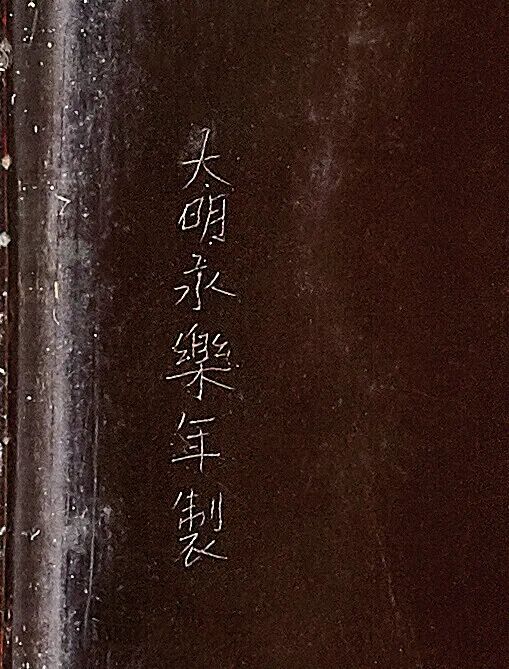 大明永樂年製